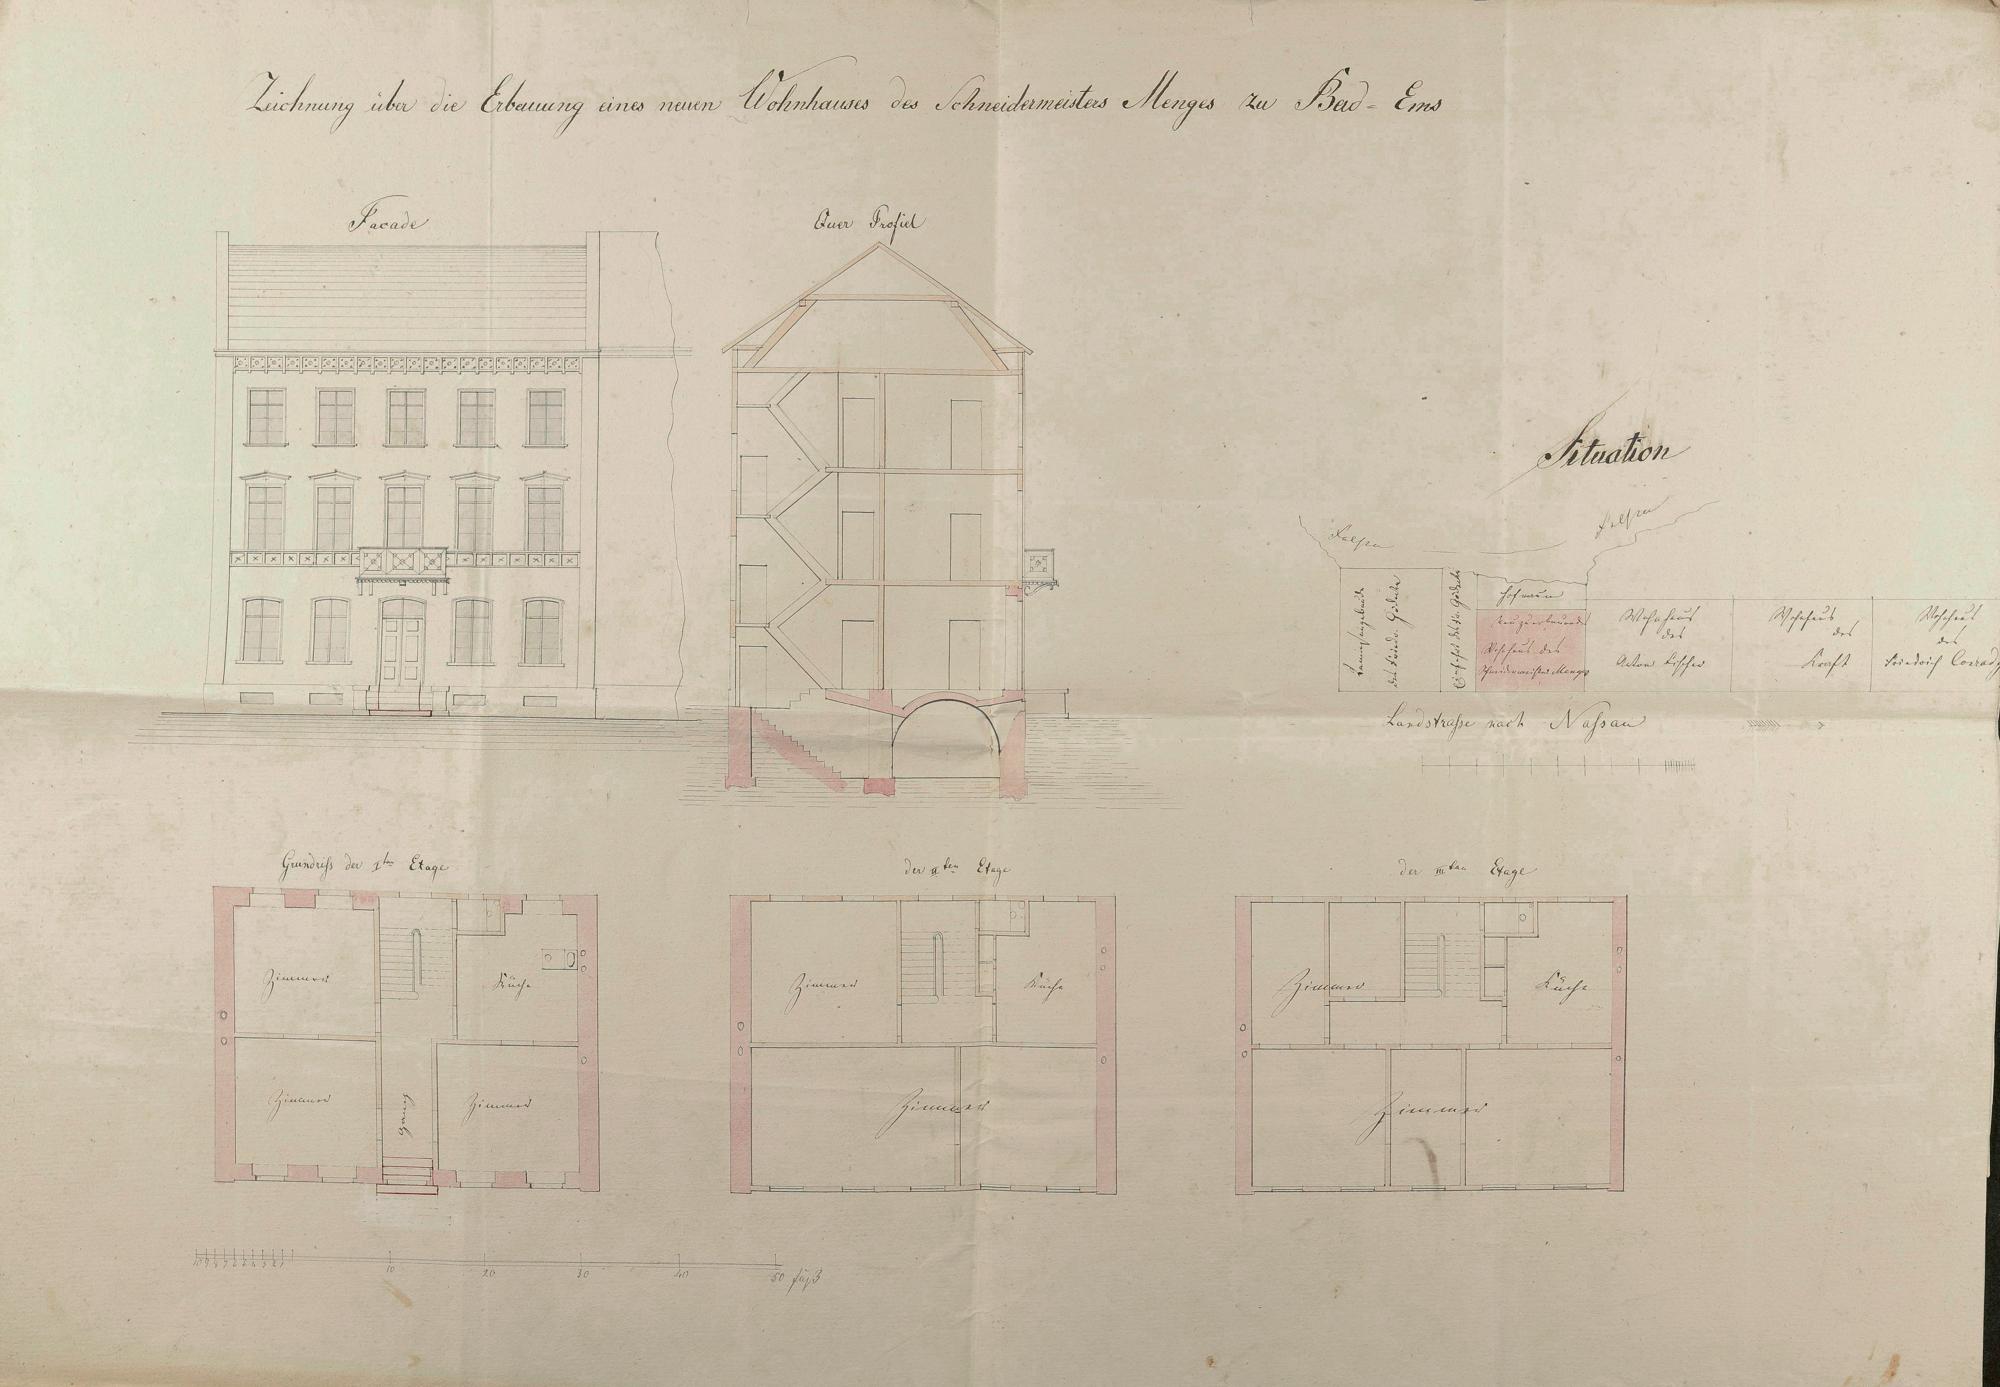 Zeichnung über die Erbauung eines neuen Wohnhauses des Schneidermeisters Menges zu Bad-Ems
Facade
Quer Profiel
Situation
Felsen
Felsen
des Friedr.
Hofraum
Neuzuerbauendes
Wohnhaus des
Schneidermeister Menges
Wohnhaus
des
Anton Fischer
Wohnhaus
des
Kraft
Wohnhaus
des
Friedrich Conrad
Landstraße nach Nassau
Grundriss der Iten Etage
der IIten Etage
der IIIten Etage
Zimmer
Küche
Zimmer
Gang
Zimmer
Zimmer
Küche
Zimmer
Zimmer
Küche
Zimmer
10 20 30 40 50 Fuß